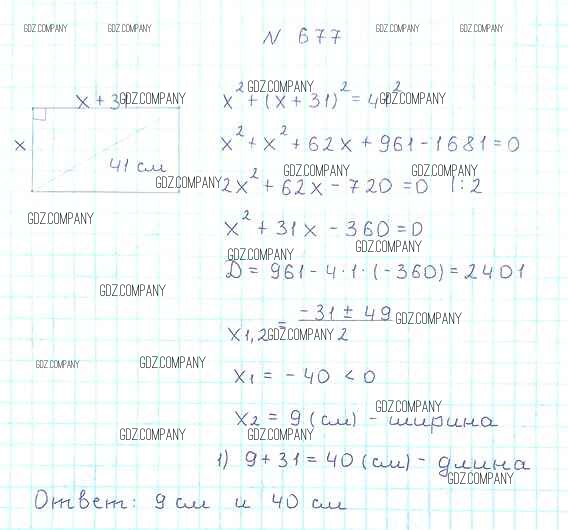 GDZ.COMPANY GDZ.COMPANY GDZ.COMPANY GDZ.COMPANY
N 677
GDZ.COMPANY
x + 31 GDZ.COMPANY x² + (x + 31)² = 41²
x x² + x² + 62x + 961 - 1681 = 0
41 см GDZ.COMPANY GDZ.COMPANY
GDZ.COMPANY 2x² + 62x - 720 = 0 |:2
GDZ.COMPANY x² + 31x - 360 = 0
GDZ.COMPANY GDZ.COMPANY
D = 961 - 4·1·(-360) = 2401
GDZ.COMPANY
x1,2 = -31 ± 49 GDZ.COMPANY
GDZ.COMPANY 2
GDZ.COMPANY GDZ.COMPANY
x1 = -40 < 0
GDZ.COMPANY
x2 = 9 (см) - ширина
GDZ.COMPANY GDZ.COMPANY
1) 9 + 31 = 40 (см) - длина
GDZ.COMPANY
Ответ: 9 см и 40 см